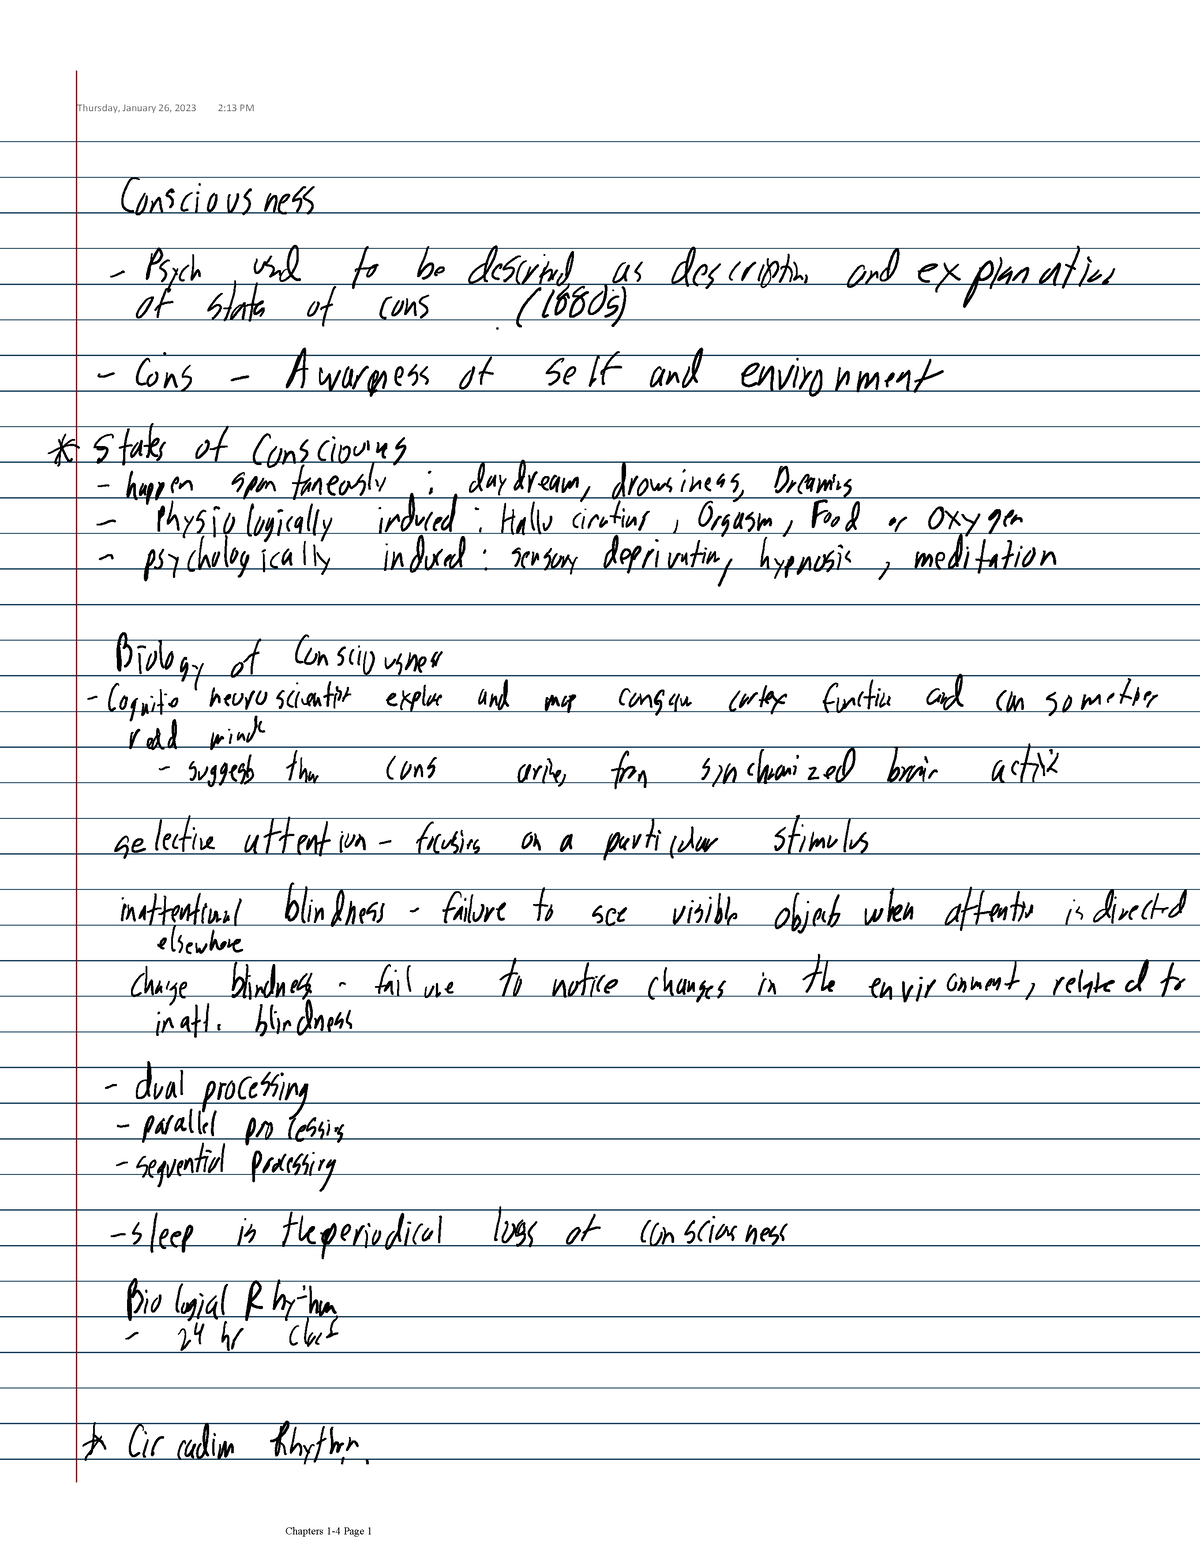 Thursday, January 26, 2023 2:13 PM
Consciousness
- Psych used to be described as description and explanation
of states of cons (1880s)
- Cons - Awareness of self and environment
* States of Consciousness
- happen spontaneously : daydream, drowsiness, Dreaming
- Physiologically induced : Hallucinations, Orgasm, Food or Oxygen
- psychologically induced : sensory deprivation, hypnosis, meditation
Biology of Consciousness
- Cognitive neuroscientist explore and map cortex function and can sometimes
read minds
- suggests that cons arises from synchronized brain
selective attention - focusing on a particular stimulus
inattentional blindness - failure to see visible objects when attention is directed
elsewhere
change blindness - failure to notice changes in the environment, related to
inatt. blindness
- dual processing
- parallel processing
- sequential processing
- sleep is the periodical loss of consciousness
Biological Rhythm
- 24 hr clock
* Circadian Rhythm.
Chapters 1-4 Page 1